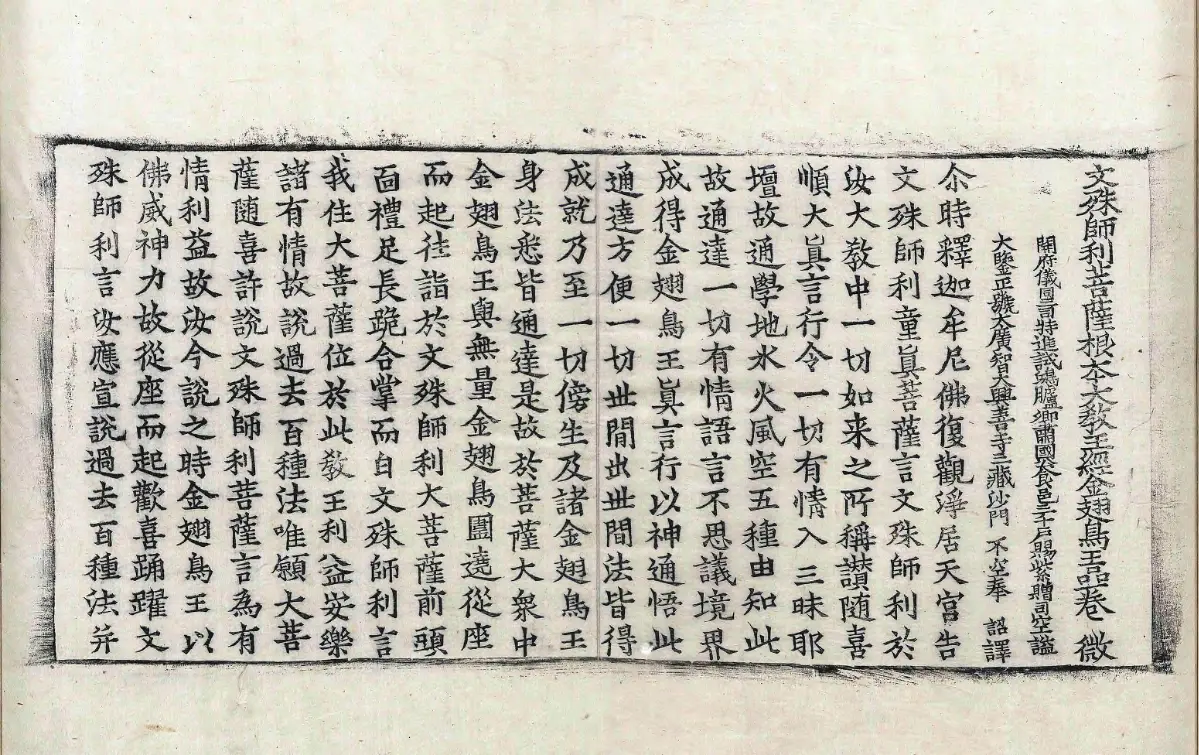 文殊師利菩薩根本大教王經金翅鳥王品卷 微
開府儀同三司特進試鴻臚卿肅國公食邑三千戶賜紫贈司空謚
大鑒正號大廣智大興善寺三藏沙門 不空奉 詔譯
尒時釋迦牟尼佛復觀淨居天宮告
文殊師利童眞菩薩言文殊師利於
汝大教中一切如来之所稱讃随喜
順大眞言行令一切有情入三昧耶
壇故通學地水火風空五種由知此
故通達一切有情語言不思議境界
成得金翅鳥王眞言行以神通悟此
通達方便一切世間出世間法皆得
成就乃至一切傍生及諸金翅鳥王
身法悉皆通達是故於菩薩大衆中
金翅鳥王與無量金翅鳥圍遶從座
而起往詣於文殊師利大菩薩前頭
面禮足長跪合掌而白文殊師利言
我住大菩薩位於此教王利益安樂
諸有情故說過去百種法唯願大菩
薩随喜許說文殊師利菩薩言為有
情利益故汝今說之時金翅鳥王以
佛威神力故從座而起歡喜踊躍文
殊師利言汝應宣說過去百種法并